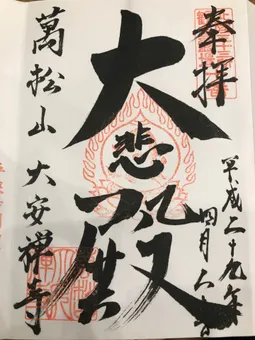 奉拝
平成二十九年
四月
大悲殿
萬松山 大安禅寺